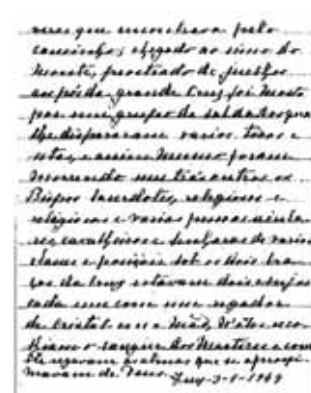 mas que encontrava pelo
caminho; chegado ao cimo do
monte, prostrado de juelhos
aos pés da grande Cruz foi morto
por um grupo de soldados que
lhe dispararam varios tiros e
setas, e assim mesmo foram
morrendo uns trás outros os
Bispos Sacerdotes, religiosos e
religiosas e varias pessoas seculares
cavalheiros e senhoras de varias
classes e posições. Sob os dois braços
da Cruz estavam dois Anjos
cada um com um regador
de cristal em a mão, n'êles recolhiam
o sangue dos Martires e com
êle regavam as almas que se aproximavam
de Deus.
Tuy-3-1-1944